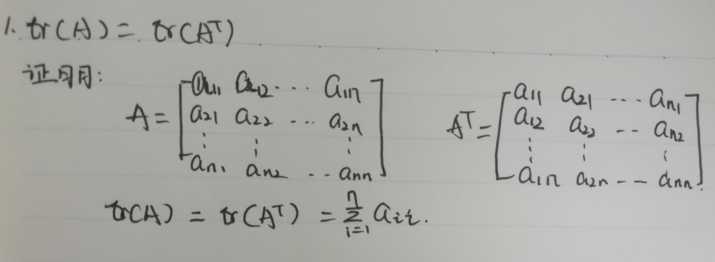 1. tr(A) = tr(Aᵀ)
证明:
A = [a₁₁ a₁₂ ⋯ a₁ₙ; a₂₁ a₂₂ ⋯ a₂ₙ; ⋮ ⋮ ⋮; aₙ₁ aₙ₂ ⋯ aₙₙ] Aᵀ = [a₁₁ a₂₁ ⋯ aₙ₁; a₁₂ a₂₂ ⋯ aₙ₂; ⋮ ⋮ ⋮; a₁ₙ a₂ₙ ⋯ aₙₙ]
tr(A) = tr(Aᵀ) = ∑ᵢ₌₁ⁿ aᵢᵢ.